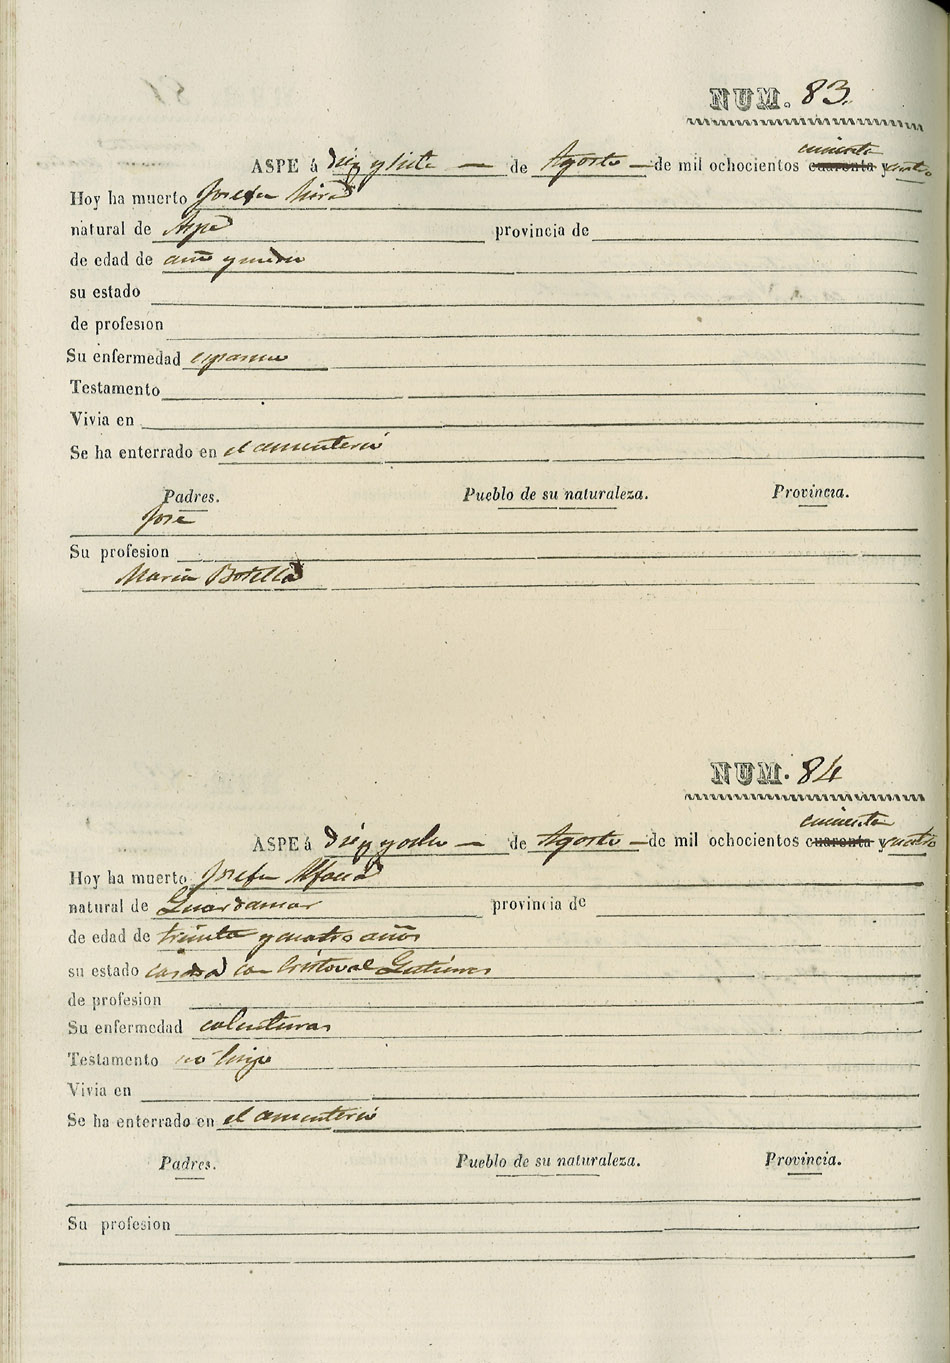 NUM. 83.
ASPE á diez y siete — de Agosto — de mil ochocientos cuarenta cincuenta y cuatro
Hoy ha muerto Josefa Mira
natural de Aspe provincia de
de edad de año y medio
su estado
de profesion
Su enfermedad espasmo
Testamento
Vivia en
Se ha enterrado en el cementerio
Padres. Pueblo de su naturaleza. Provincia.
José
Su profesion
Maria Botella
NUM. 84
ASPE á diez y ocho — de Agosto — de mil ochocientos cuarenta cincuenta y cuatro
Hoy ha muerto Josefa
natural de Guardamar provincia de
de edad de treinta y cuatro años
su estado casada con Cristoval Gutierres
de profesion
Su enfermedad calenturas
Testamento no hizo
Vivia en
Se ha enterrado en el cementerio
Padres. Pueblo de su naturaleza. Provincia.
Su profesion